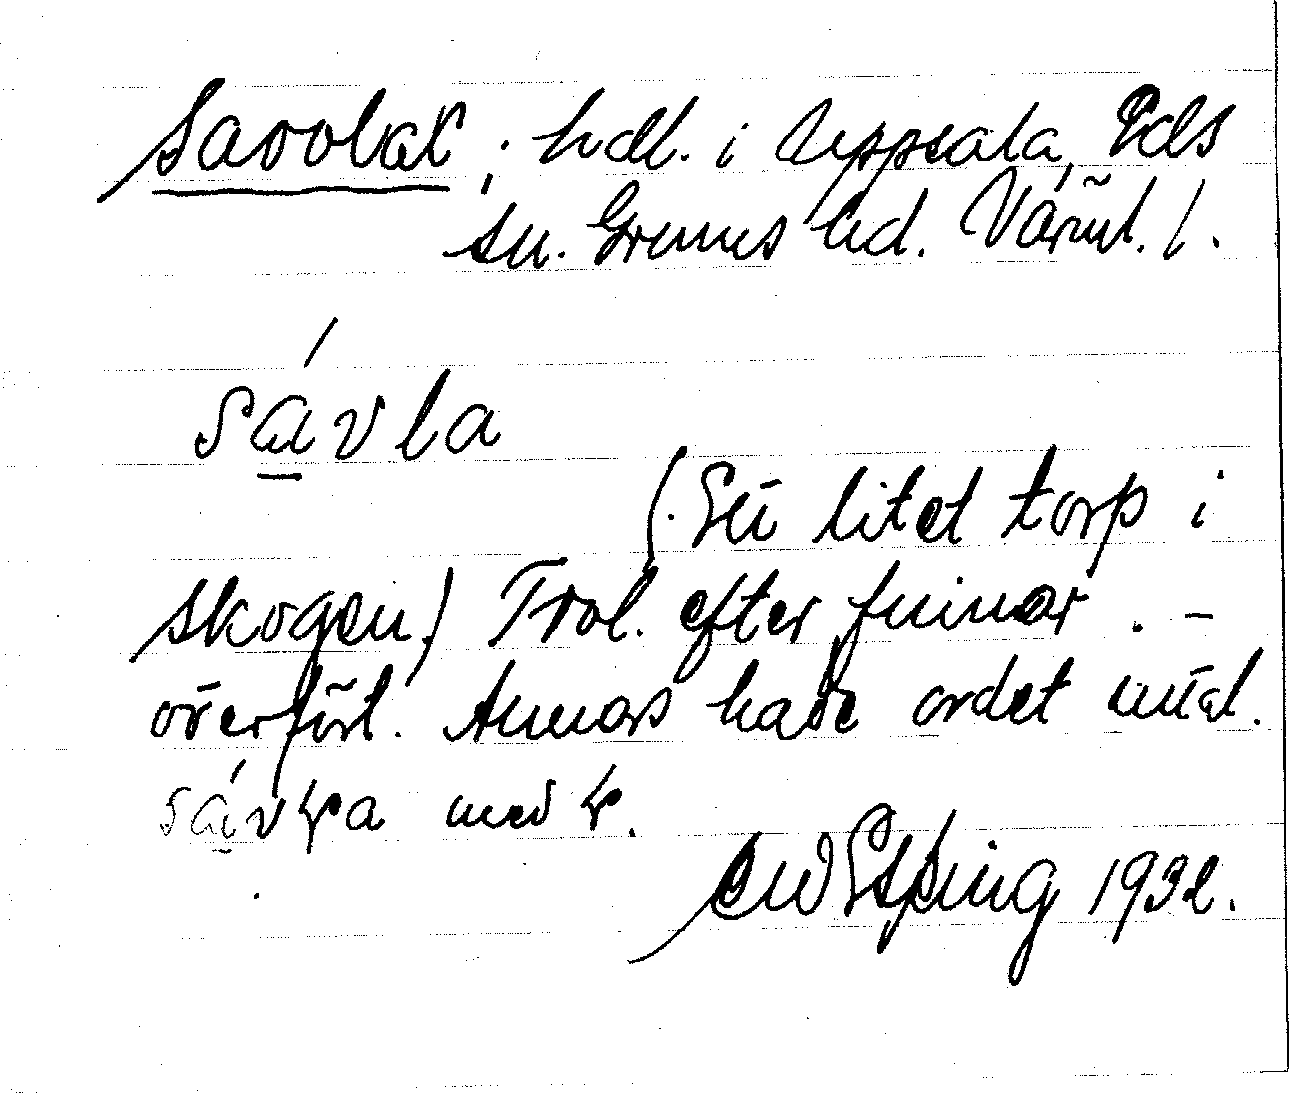 Savolax; hdl. i Uppsala, Eds
sn. Grums hd. Värml. l.
sávla
(Ett litet torp i
skogen) Trol. efter finnar. –
överförl. Annars hade ordet uttal.
sávḷa med ḷ.
EWEsping 1932.